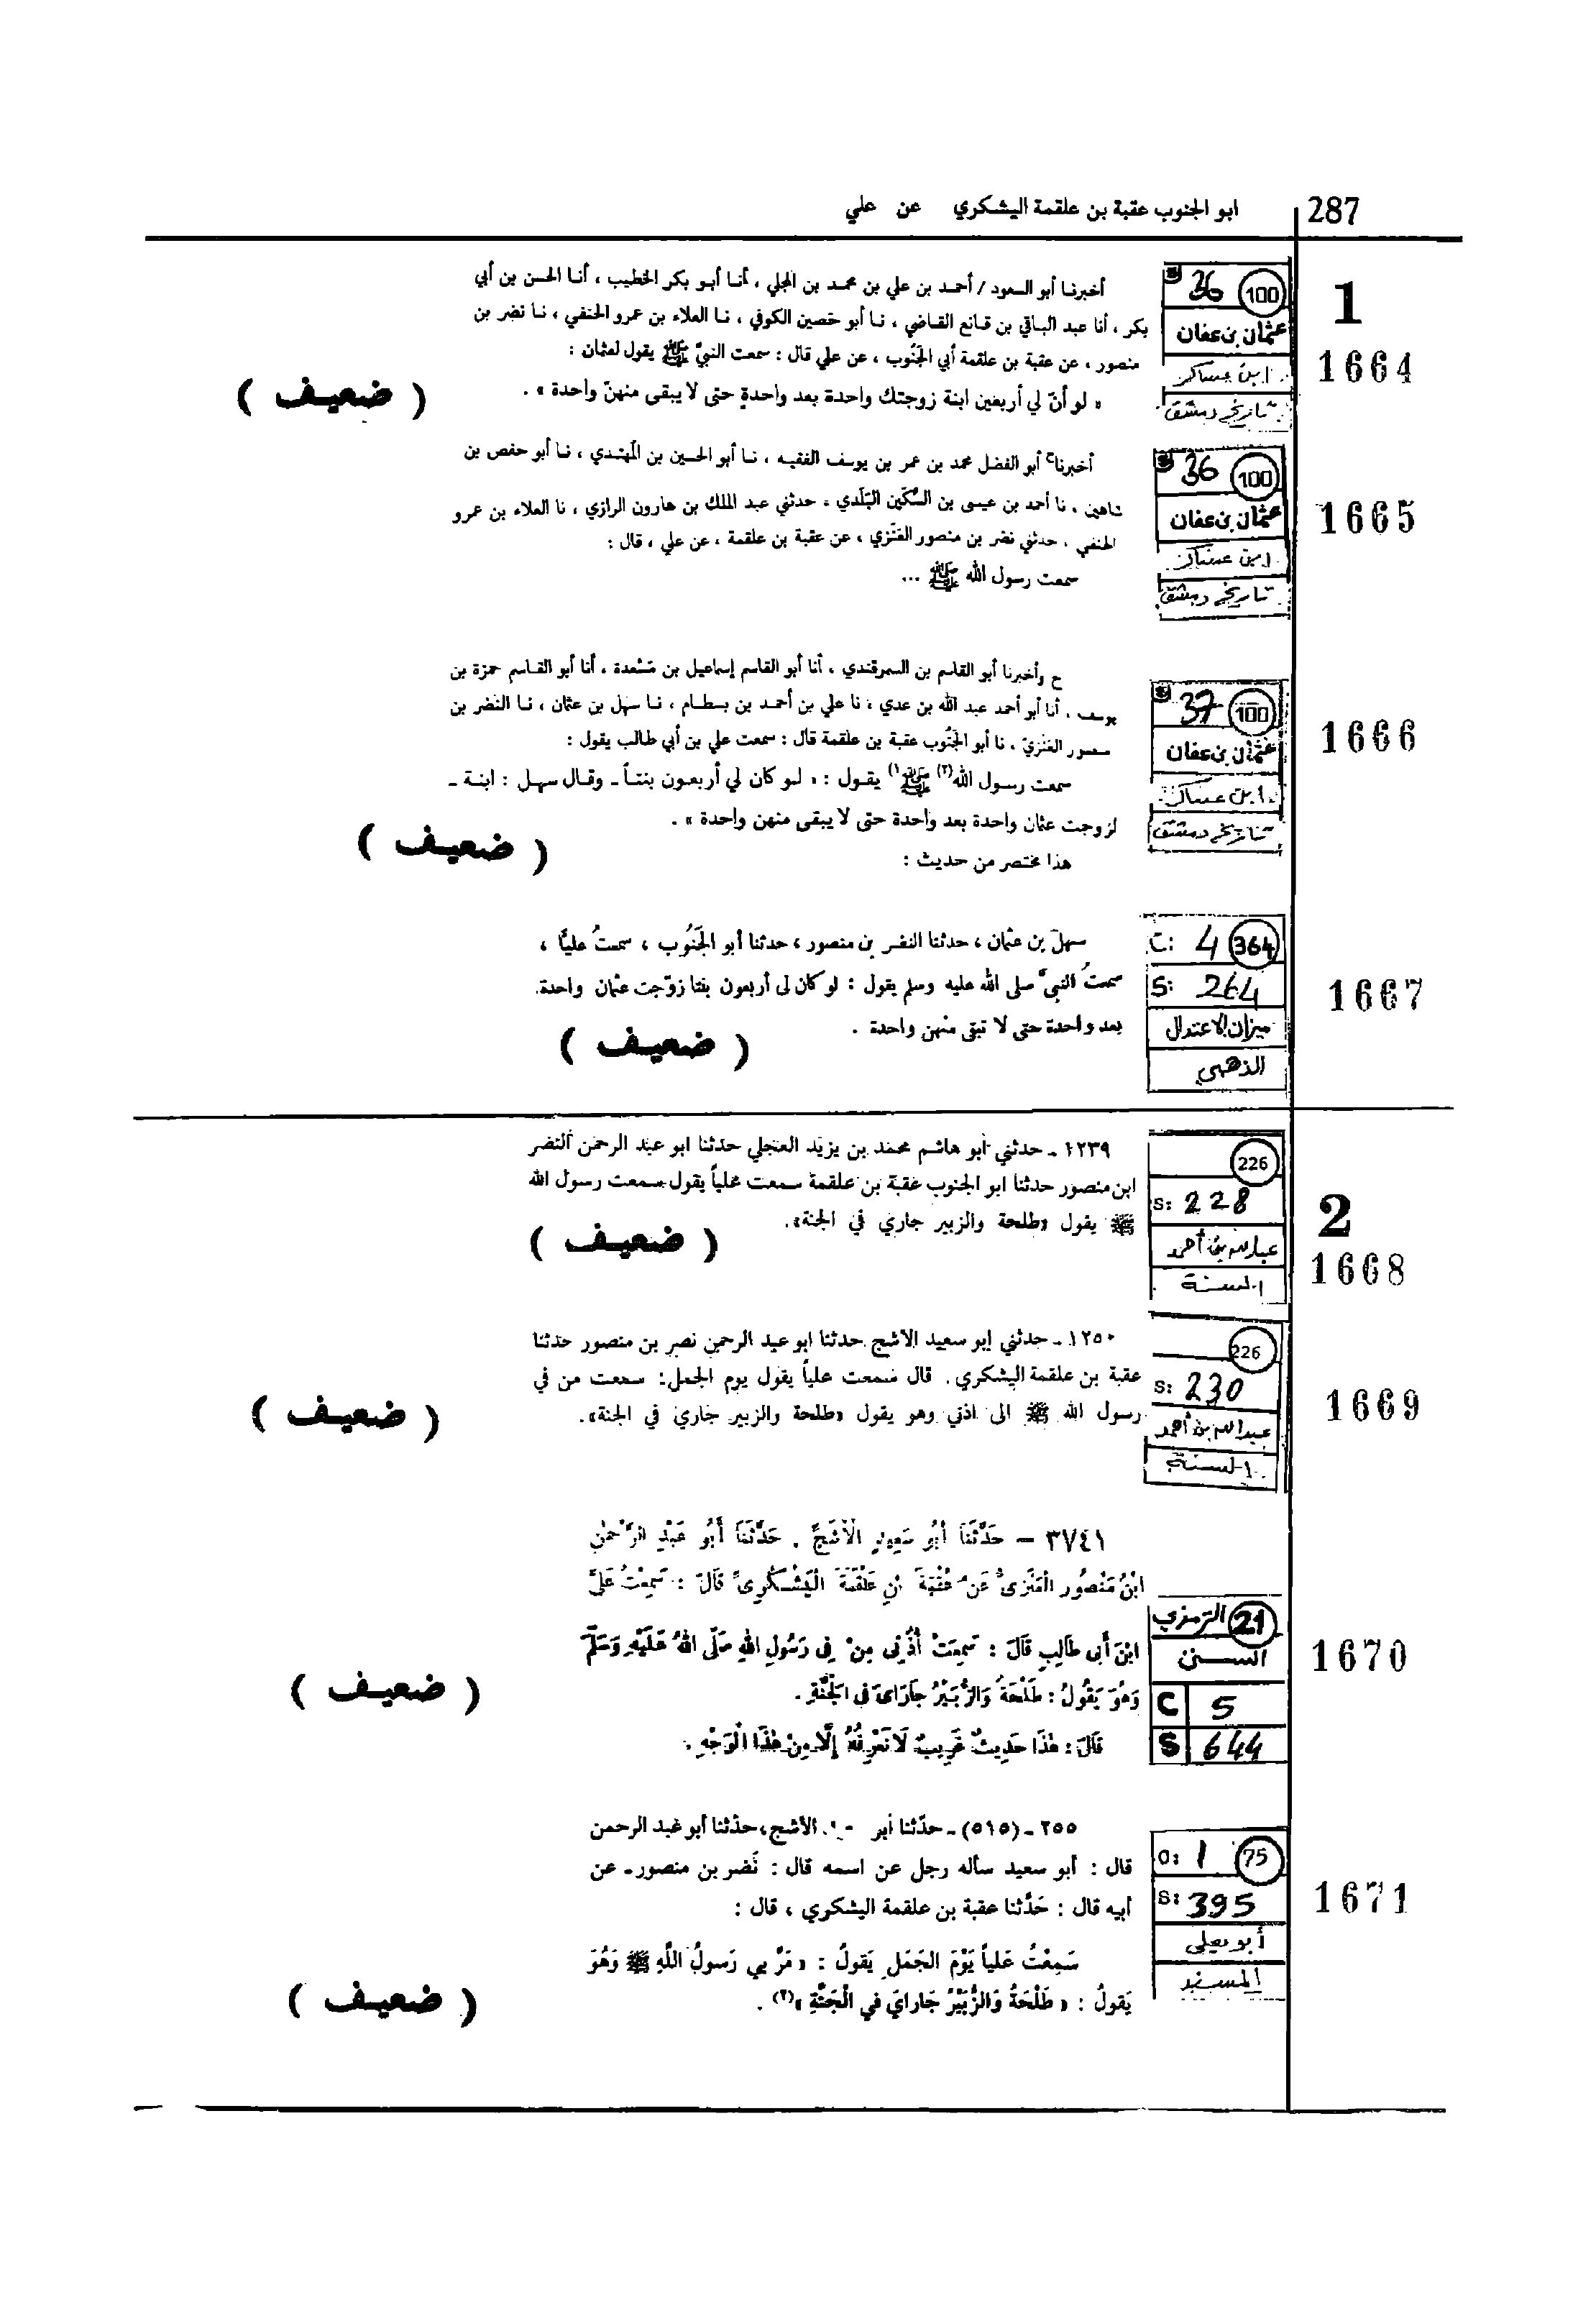 287
ابو الجنوب عقبة بن علقمة اليشكري عن علي
1
1664
S 36 100
عثمان بن عفان
ابن عساكر
تاريخ دمشق
أخبرنا أبو السعود / أحمد بن علي بن محمد بن المجلي ، أنا أبو بكر الخطيب ، أنا الحسن بن أبي
بكر ، أنا عبد الباقي بن قانع القاضي ، نا أبو حصين الكوفي ، نا العلاء بن عمرو الحنفي ، نا نضر بن
منصور ، عن عقبة بن علقمة أبي الجنوب ، عن علي قال : سمعت النبي ﷺ يقول لعثمان :
« لو أن لي أربعين ابنة زوجتك واحدة بعد واحدة حتى لا يبقى منهن واحدة » .
( ضعيف )
1665
S 36 100
عثمان بن عفان
ابن عساكر
تاريخ دمشق
أخبرنا أبو الفضل محمد بن عمر بن يوسف الفقيه ، نا أبو الحسين بن المهتدي ، نا أبو حفص بن
شاهين ، نا أحمد بن عيسى بن السكين البلدي ، حدثني عبد الملك بن هارون الرازي ، نا العلاء بن عمرو
الحنفي ، حدثني نضر بن منصور العنزي ، عن عقبة بن علقمة ، عن علي ، قال :
سمعت رسول الله ﷺ ...
1666
S 37 100
عثمان بن عفان
ابن عساكر
تاريخ دمشق
ح وأخبرنا أبو القاسم بن السمرقندي ، أنا أبو القاسم إسماعيل بن مسعدة ، أنا أبو القاسم حمزة بن
يوسف ، أنا أبو أحمد عبد الله بن عدي ، نا علي بن أحمد بن بسطام ، نا سهل بن عثمان ، نا النضر بن
منصور العنزي ، نا أبو الجنوب عقبة بن علقمة قال : سمعت علي بن أبي طالب يقول :
سمعت رسول الله (٢) ﷺ (١) يقول : « لو كان لي أربعون بنتاً ـ وقال سهل : ابنة ـ
لزوجت عثمان واحدة بعد واحدة حتى لا يبقى منهن واحدة » .
( ضعيف )
هذا مختصر من حديث :
1667
C: 4 364
S: 264
ميزان الاعتدال
الذهبي
سهل بن عثمان ، حدثنا النضر بن منصور ، حدثنا أبو الجنوب ، سمعتُ عليًّا ،
سمعتُ النبيَّ صلى الله عليه وسلم يقول : لو كان لي أربعون بنتا زوّجت عثمان واحدة
بعد واحدة حتى لا تبقى منهن واحدة .
( ضعيف )
2
1668
226
S: 228
عبد الله بن أحمد
السنة
١٢٣٩ ـ حدثني أبو هاشم محمد بن يزيد العجلي حدثنا ابو عبد الرحمن النضر
ابن منصور حدثنا ابو الجنوب عقبة بن علقمة سمعت علياً يقول سمعت رسول الله
ﷺ يقول «طلحة والزبير جاري في الجنة».
( ضعيف )
1669
226
S: 230
عبد الله بن أحمد
السنة
١٢٥٠ ـ حدثني ابو سعيد الأشج حدثنا ابو عبد الرحمن نصر بن منصور حدثنا
عقبة بن علقمة اليشكري. قال سمعت علياً يقول يوم الجمل: سمعت من في
رسول الله ﷺ الى اذني وهو يقول «طلحة والزبير جاري في الجنة».
( ضعيف )
1670
الترمذي 21
السنن
C 5
S 644
٣٧٤١ – حَدَّثَنَا أَبُو سَعِيدٍ الْأَشَجُّ . حَدَّثَنَا أَبُو عَبْدِ الرَّحْمٰنِ
ابْنُ مَنْصُورٍ الْعَنَزِىُّ عَنْ عُقْبَةَ بْنِ عَلْقَمَةَ الْيَشْكُرِىِّ قَالَ : سَمِعْتُ عَلِىَّ
ابْنَ أَبِى طَالِبٍ قَالَ : سَمِعَتْ أُذُنِى مِنْ فِى رَسُولِ اللهِ صَلَّى اللهُ عَلَيْهِ وَسَلَّمَ
وَهُوَ يَقُولُ : طَلْحَةُ وَالزُّبَيْرُ جَارَاىَ فِى الْجَنَّةِ .
( ضعيف )
قَالَ : هٰذَا حَدِيثٌ غَرِيبٌ لَا نَعْرِفُهُ إِلَّا مِنْ هٰذَا الْوَجْهِ .
1671
C: 1 75
S: 395
أبو يعلى
المسند
٢٥٥ ـ (٥١٥) ـ حدّثنا أبو الأشج، حدّثنا أبو عبد الرحمن
قال : أبو سعيد سأله رجل عن اسمه قال : نَضر بن منصور ـ عن
أبيه قال : حَدَّثنا عقبة بن علقمة اليشكري ، قال :
سَمِعْتُ عَلياً يَوْمَ الجَمَلِ يَقولُ : « مَرَّ بي رَسولُ اللَّهِ ﷺ وَهُوَ
يَقولُ : « طَلْحَةُ وَالزُّبَيْرُ جَارايَ في الْجَنَّةِ » (٢) .
( ضعيف )